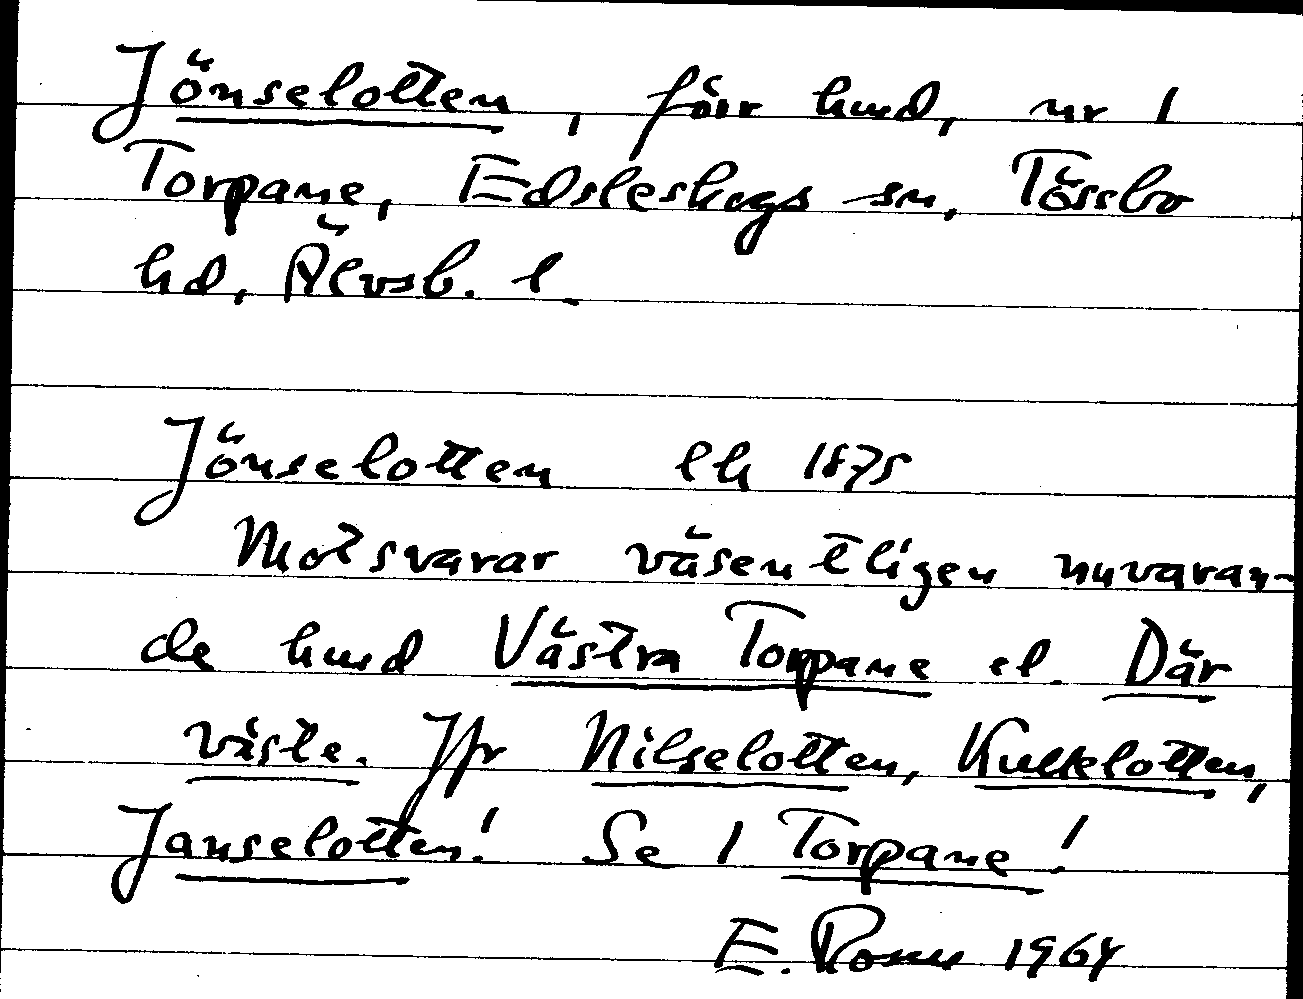 Jönselotten, förr hmd, nr 1
Torpane, Edsleskogs sn, Tössbo
hd, Älvsb. l.
Jönselotten lh 1875
Motsvarar väsentligen nuvaran-
de hmd Västra Torpane el. Där
väste. Jfr Nilselotten, Kullelotten,
Janselotten! Se 1 Torpane!
E. 1964